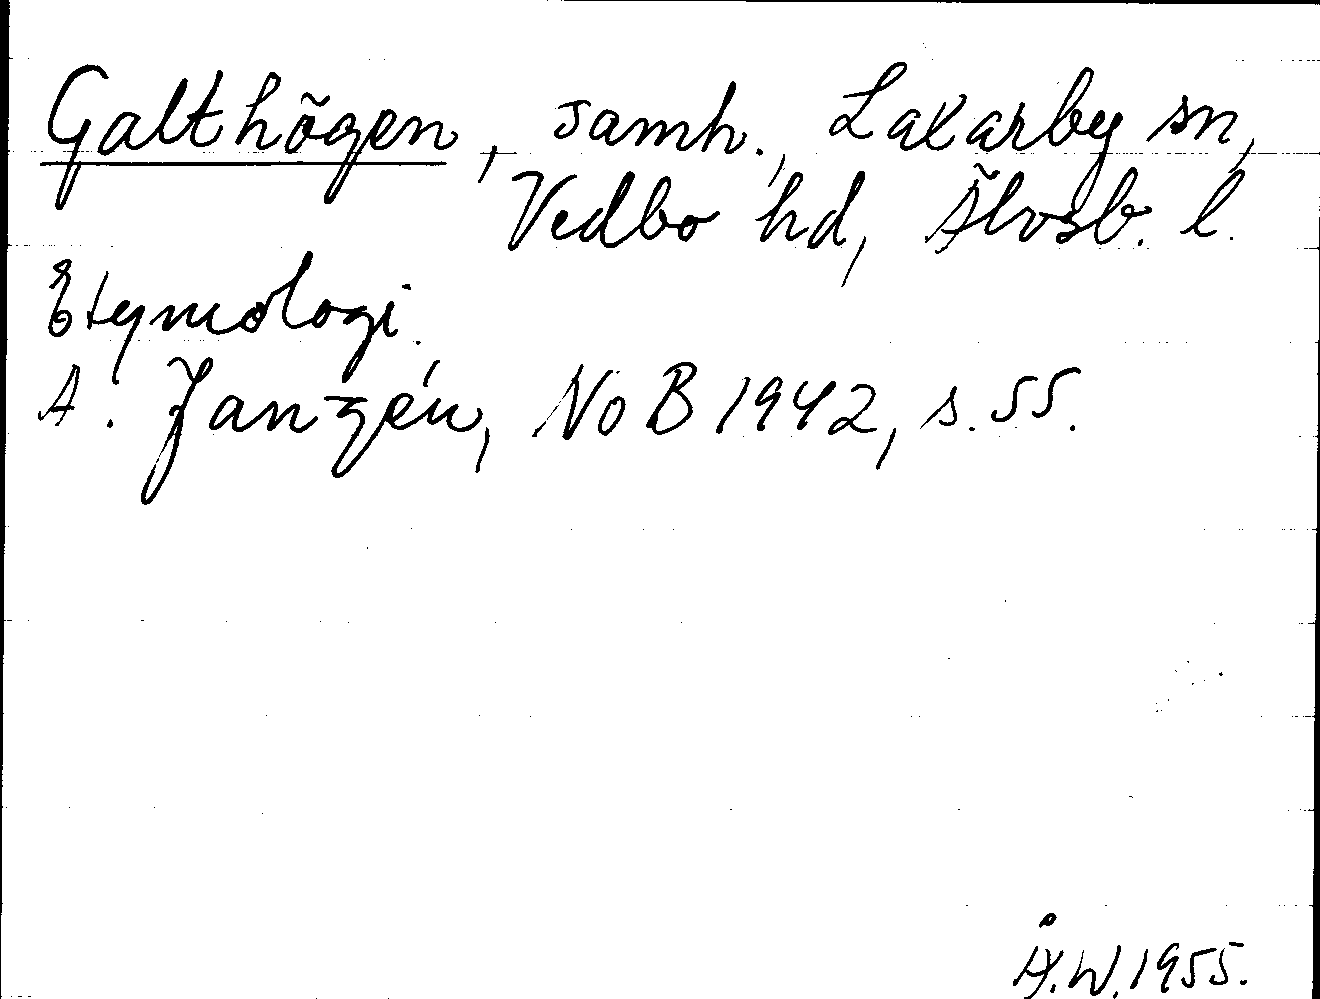 Galthögen, samh., Laxarby sn,
Vedbo hd, Älvsb. l.
Etymologi.
A. Janzén, NoB 1942, s. 55.
Å.W. 1955.